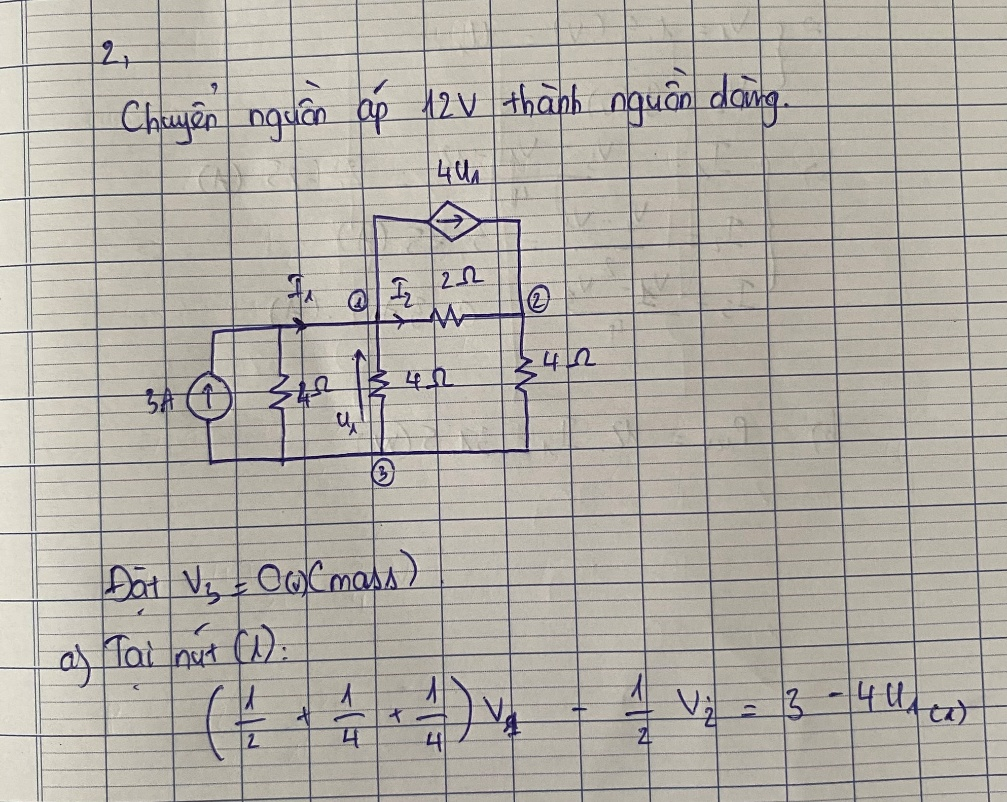 2,
Chuyển nguồn áp 12V thành nguồn dòng.
4U₁
I₁ ① I₂ 2Ω ②
3A 4Ω U₁ 4Ω 4Ω
③
Đặt V₃ = 0(v)(mass)
a) Tại nút (1):
(1/2 + 1/4 + 1/4) V₁ - 1/2 V₂ = 3 - 4U₁ (1)